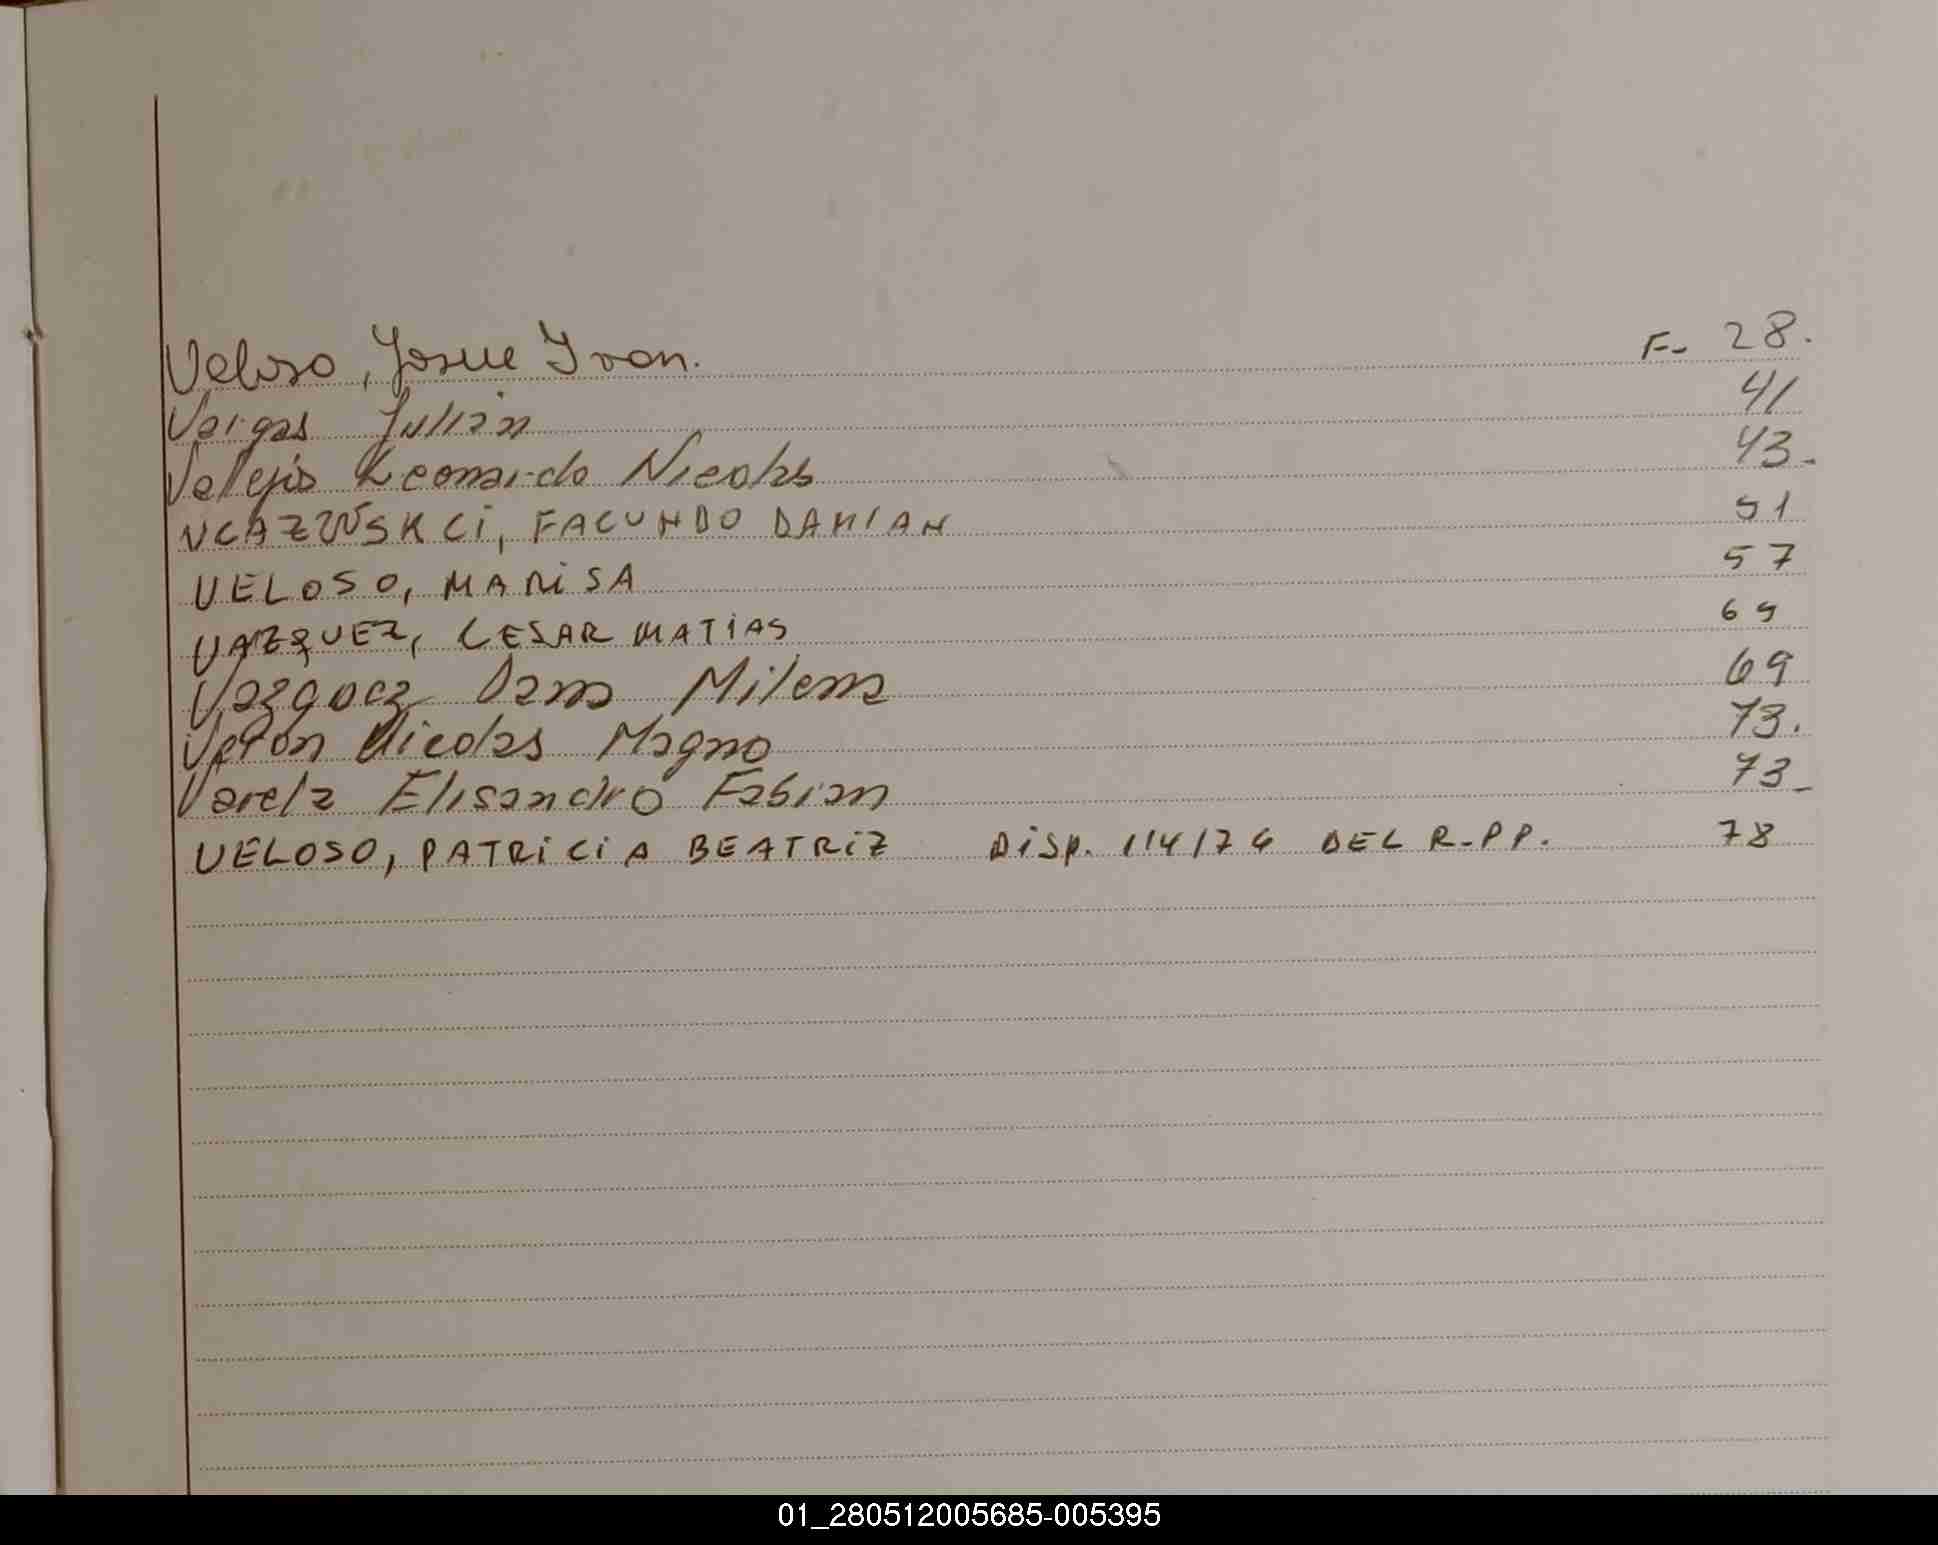 Veloso, Josue Ivan. F- 28.
Vargas Julian 41
Vallejos Leonardo Nicolas 43-
FACUNDO DAMIAN 51
VELOSO, MARISA 57
VAZQUEZ, CESAR MATIAS 65
Vazquez Milena 69
Veron Nicolas Magno 73.
Varela Elisandro Fabian 73-
VELOSO, PATRICIA BEATRIZ DISP. DEL R.PP. 78
01_280512005685-005395